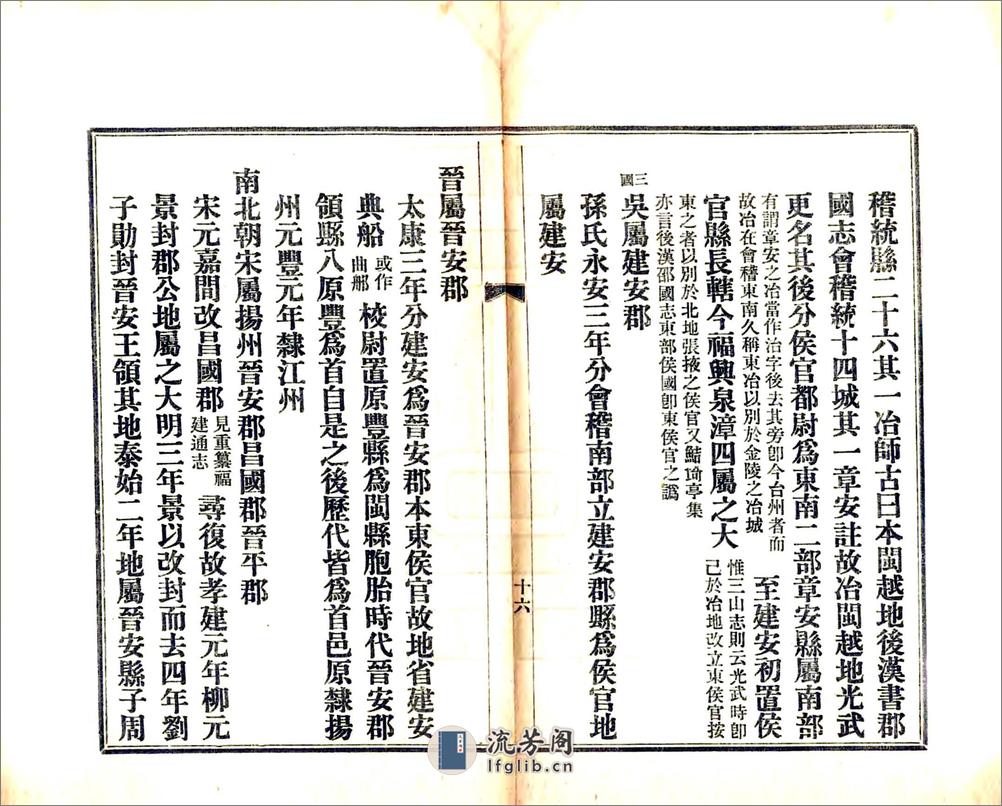 稽統縣二十六其一冶師古曰本閩越地後漢書郡
國志會稽統十四城其一章安註故冶閩越地光武
更名其後分侯官都尉爲東南二部章安縣屬南部
有謂章安之冶當作治字後去其旁卽今台州者而
故冶在會稽東南久稱東冶以別於金陵之冶城
至建安初置侯
官縣長轄今福興泉漳四屬之大
惟三山志則云光武時卽
已於冶地改立東侯官按
東之者以別於北地張掖之侯官又鮚埼亭集
亦言後漢郡國志東部侯國卽東侯官之譌
三國
吳屬建安郡
孫氏永安三年分會稽南部立建安郡縣爲侯官地
屬建安
十六
晉屬晉安郡
太康三年分建安爲晉安郡本東侯官故地省建安
典船
或作
曲郍
校尉置原豐縣爲閩縣胞胎時代晉安郡
領縣八原豐爲首自是之後歷代皆爲首邑原隸揚
州元豐元年隸江州
南北朝宋屬揚州晉安郡昌國郡晉平郡
宋元嘉間改昌國郡
見重纂福
建通志
尋復故孝建元年柳元
景封郡公地屬之大明三年景以改封而去四年劉
子勛封晉安王領其地泰始二年地屬晉安縣子周
流芳阁
lfglib.cn